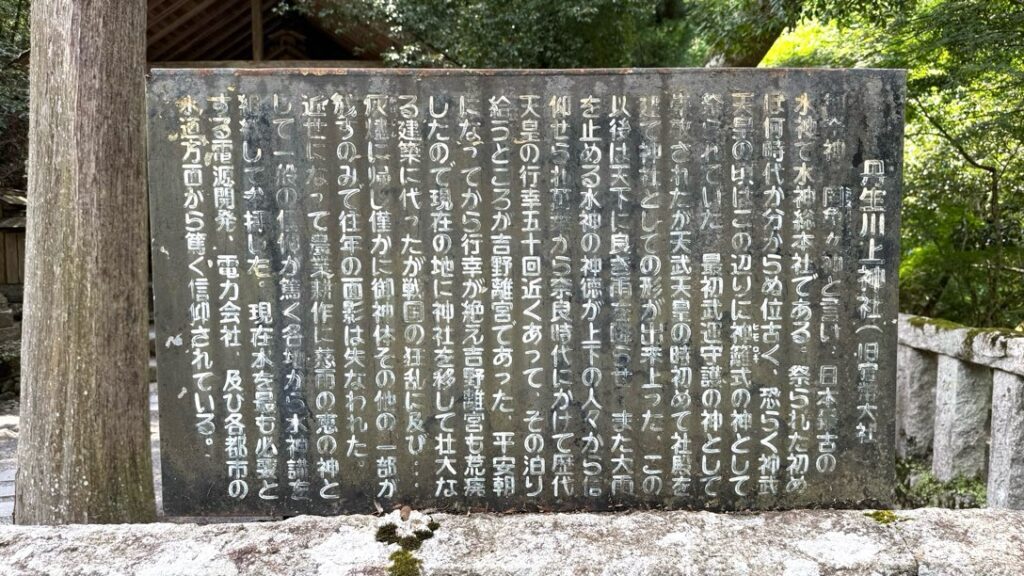 丹生川上神社(旧官幣大社
神 神と言い、日本最古の
水神で水神総本社である。祭られた初め
は何時代か分からぬ位古く、恐らく神武
天皇の頃はこの辺りに神籬式の神として
祭られていた 最初武運守護の神として
されたが天武天皇の時初めて社殿を
建て神社としての形が出来上った、この
以後は天下に良き雨を降らせ、また大雨
を止める水神の神徳が上下の人々からは
仰せられ から奈良時代にかけて歴代
天皇の行幸五十回近くあって、その泊り
給うところが吉野離宮であった、平安朝
になってから行幸が絶え吉野離宮も荒廃
したので現在の地に神社を移して壮大な
る建築に代ったが戦国の狂乱に及び…
灰燼に帰し僅かに御神体その他の一部が
残るのみで往年の面影は失なわれた。
近世になって農業耕作に慈雨の恵の神と
して一般の信仰が篤く各地から水神講を
組織して参拝した。現在水を最も必要と
する電源開発、電力会社、及び各都市の
水道方面から篤く信仰されている。